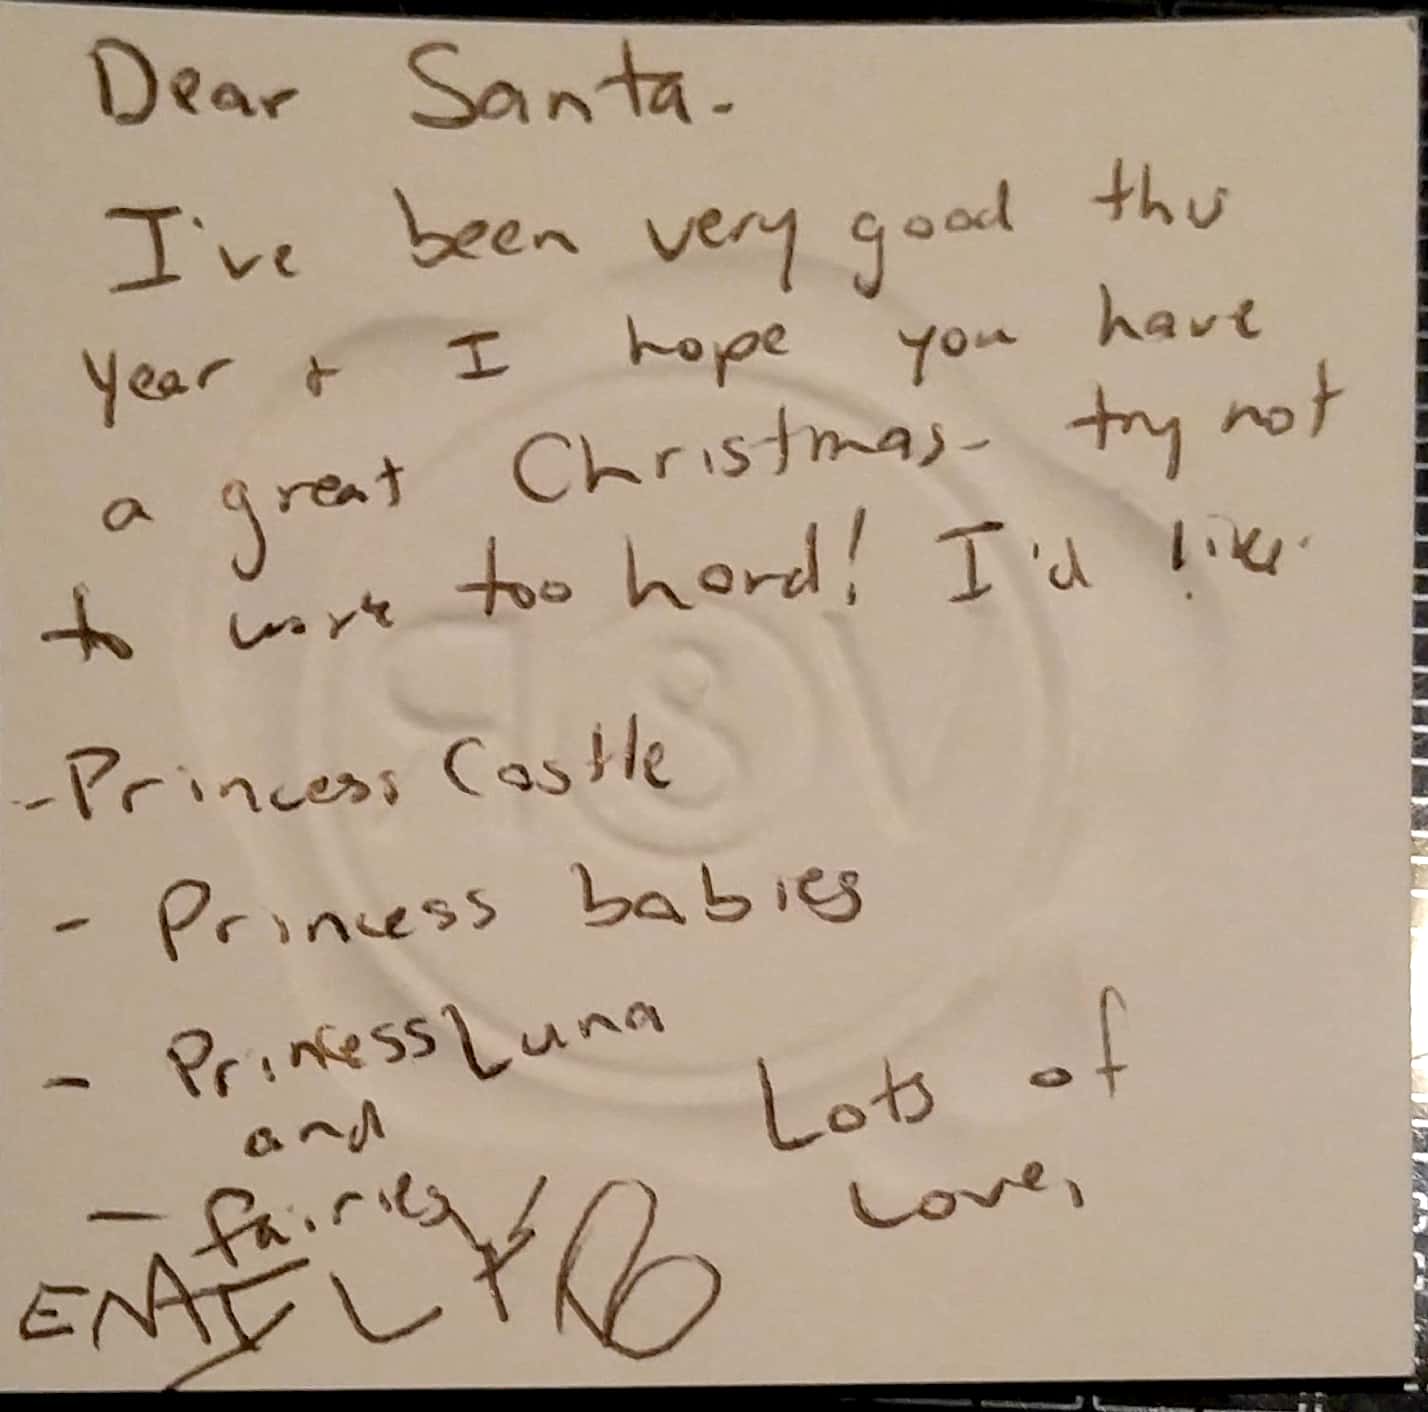 Dear Santa-
I've been very good this
year + I hope you have
a great Christmas- try not
to work too hard! I'd like
-Princess Castle
- Princess babies
- Princess Luna
and
- fairies
Lots of
Love,
EMILY B